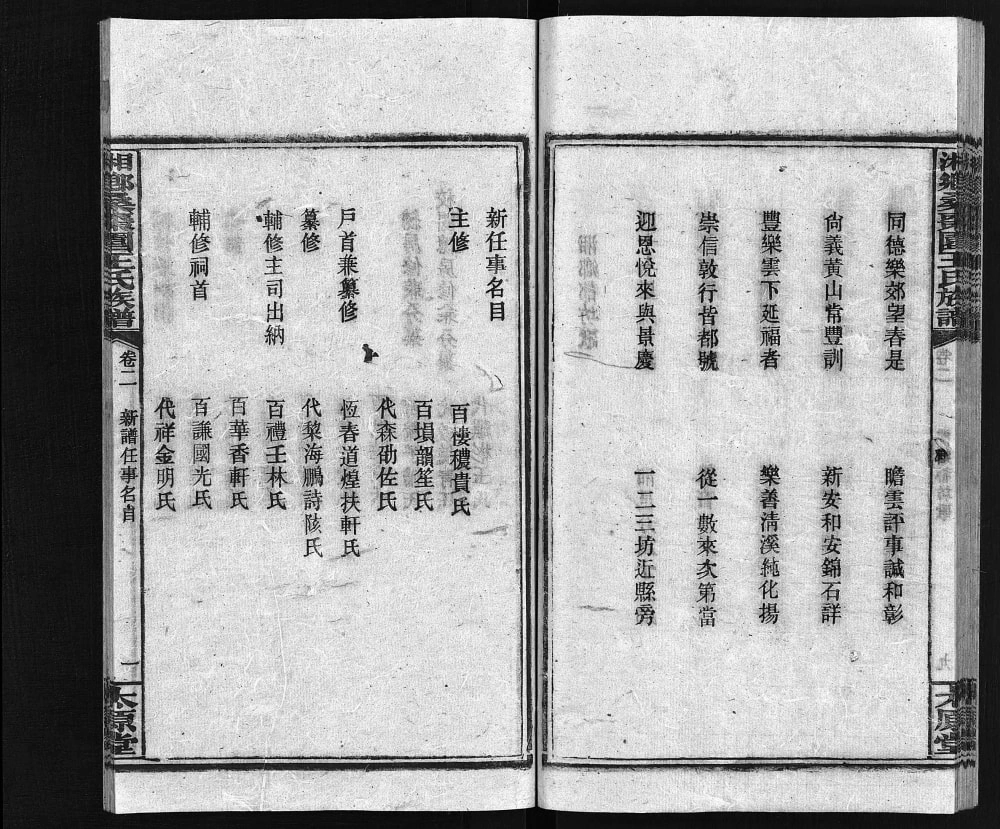 同德樂郊望春是 瞻雲評事誠和彰
尙義黃山常豐訓 新安和安錦石詳
豐樂雲下延福者 樂善清溪純化揚
崇信敦行皆都號 從一數來次第當
迎恩悅來與景慶 一二三坊近縣旁
太原堂
新任事名目
主修 百㯶穠貴氏
百塤韻笙氏
代森劭佐氏
戶首兼纂修 恆春道煌扶軒氏
纂修 代黎海鵬詩陔氏
輔修主司出納 百禮壬林氏
百華香軒氏
輔修祠首 百謙國光氏
代祥金明氏
王氏族譜 卷二 新譜任事名目 一 太原堂